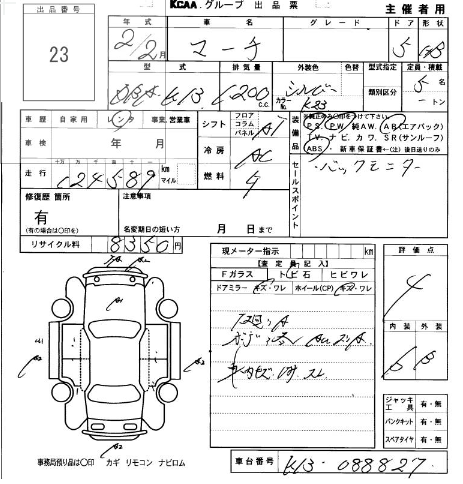 KCAA.グループ 出品票 主催者用
出品番号
23
年式 車名 グレード ドア 形状
2/2月 マーチ 5 HB
型式 排気量 外装色 色替 型式指定 定員・積載
DBA-K13 1200 c.c. シルバー カラーNo. K23 類別区分 5名 トン
車歴 自家用 レンタ 事業,営業車
車検 年 月
シフト フロア コラム パネル AT
冷房 AC
燃料 ガ
装備品
※純正のみ○印を付けて下さい。
PS. PW. 純AW. AB(エアバック)
TV. ナビ. カワ. SR(サンルーフ)
ABS. 新車保証書←(注)後日送りのみ
走行 十万 万 千 百 十 km マイル
124589
セールスポイント
・バックモニター
修復歴 箇所
有
(有の場合は○印を)
注意事項
名変期日の短い方 月 日まで
リサイクル料 8350円
現メーター指示 km
【査定員記入】
Fガラス トビ石 ヒビワレ
ドアミラー キズ・ワレ ホイール(CP) キズ・ワレ
評価点
4
内装 外装
B B
A1
A2
ジャッキ 工具 有・無
パンクキット 有・無
スペアタイヤ 有・無
事務局預り品は○印 カギ リモコン ナビロム
車台番号 K13-088827